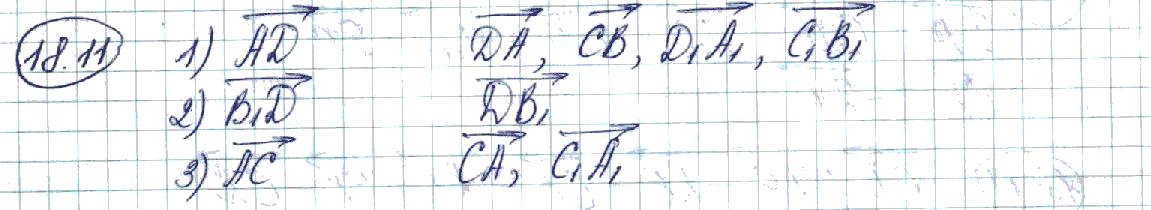 18.11 1) AD⃗ DA⃗, CB⃗, D₁A₁⃗, C₁B₁⃗
2) B₁D⃗ DB₁⃗
3) AC⃗ CA⃗, C₁A₁⃗